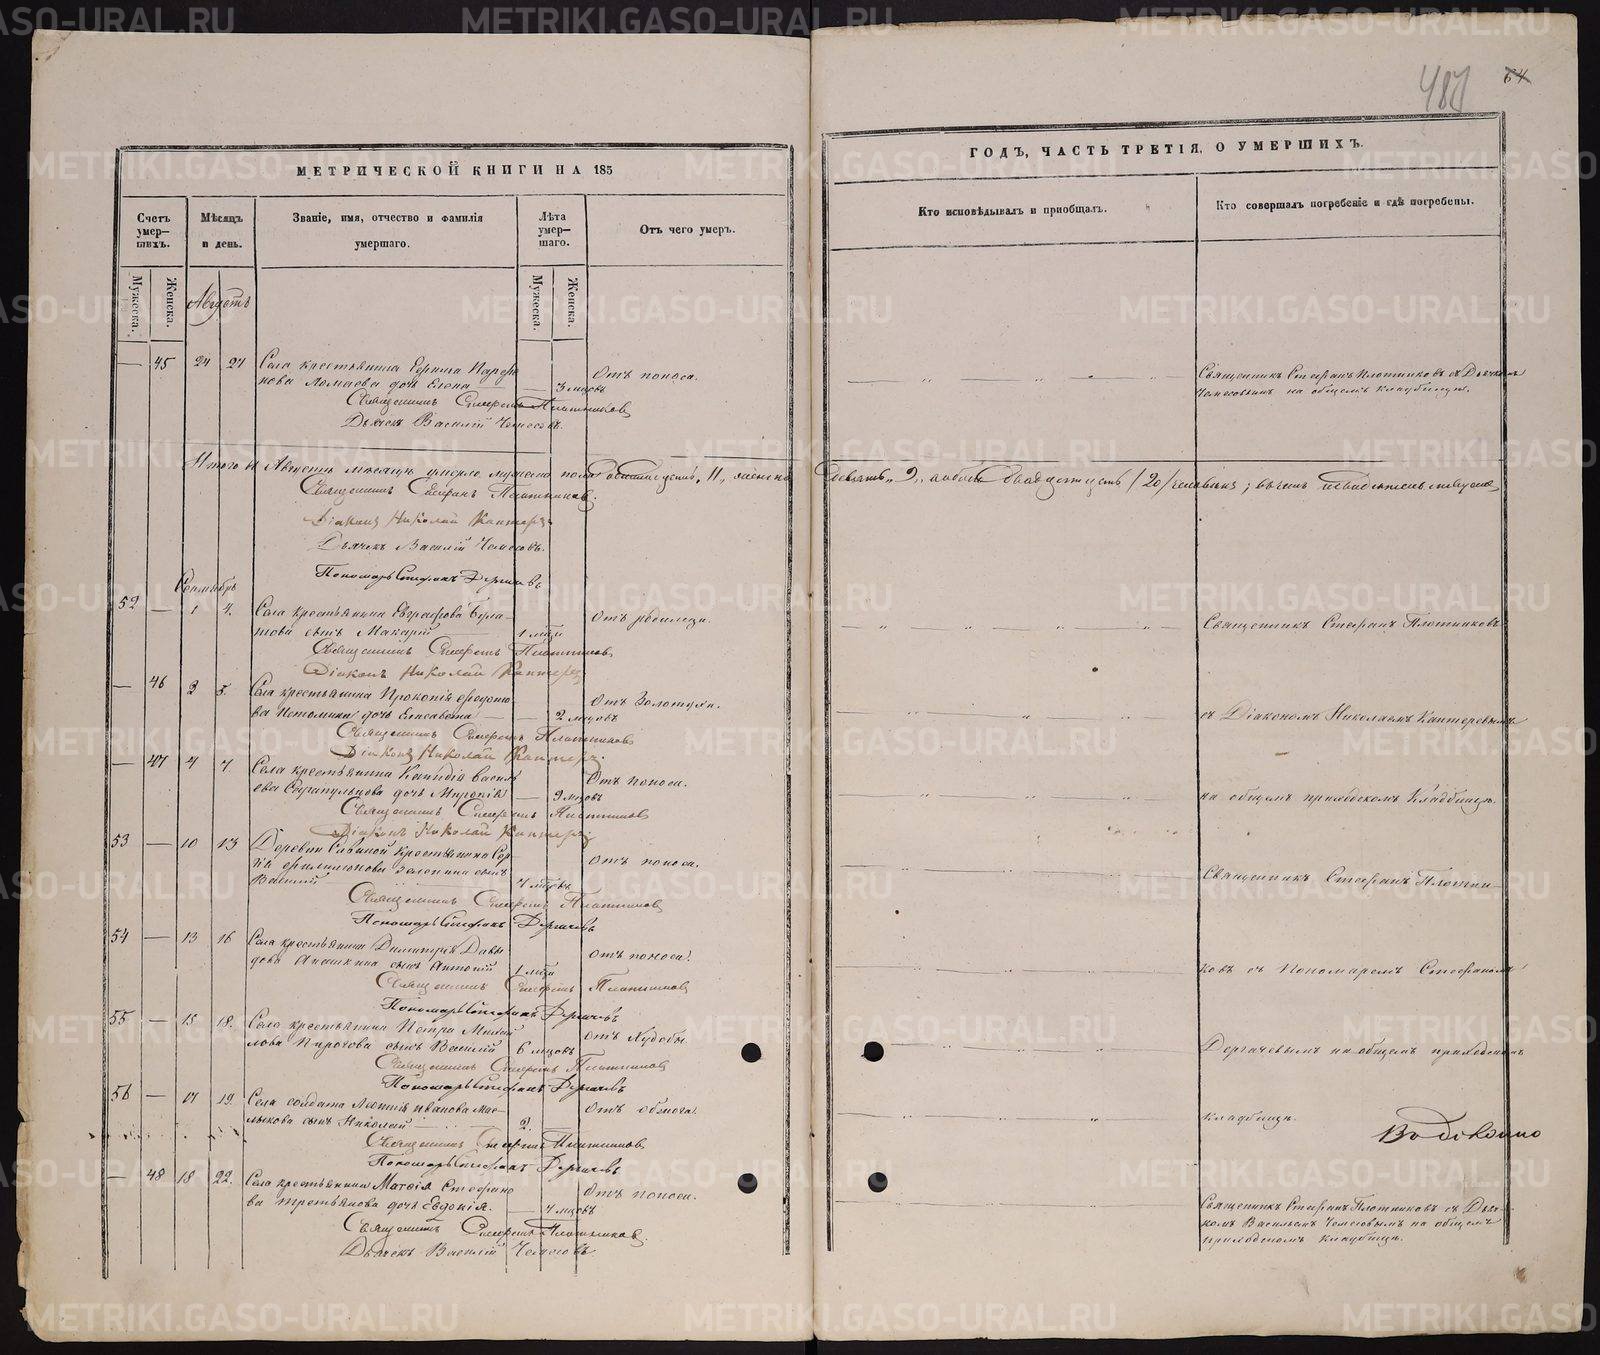 487
64
МЕТРИЧЕСКОЙ КНИГИ НА 185
ГОДЪ, ЧАСТЬ ТРЕТІЯ, О УМЕРШИХЪ.
Счетъ умер–шихъ.
Мѣсяцъ и день.
Званіе, имя, отчество и фамилія умершаго.
Лѣта умер–шаго.
Отъ чего умеръ.
Кто исповѣдывалъ и приобщалъ.
Кто совершалъ погребеніе и гдѣ погребены.
Мужеска.
Женска.
Мужеска.
Женска.
Августъ
— 45 24 27 Села крестьянина
дочь Елена — 3 мцовъ
Отъ поноса.
Священникъ Стефанъ Плотниковъ съ Дьячкомъ
Чемесовымъ на общемъ кладбищѣ.
Священникъ Стефанъ Плотниковъ
Дьячекъ Василій Чемесовъ.
Итого въ Августѣ мѣсяцѣ умерло мужеска пола 11, женска
девять 9, обоего двадцать /20/ человѣкъ; въ чемъ и свидѣтельствуемъ
Священникъ Стефанъ Плотниковъ.
Діаконъ Николай Кантеревъ
Дьячекъ Василій Чемесовъ.
Пономарь Стефанъ Дергачевъ
Сентябрь
52 — 1 4. Села крестьянина Евграфова
сынъ Макарій 1 мца
Отъ родимца.
Священникъ Стефанъ Плотниковъ
Священникъ Стефанъ Плотниковъ
Діаконъ Николай Кантеревъ
— 46 2 5. Села крестьянина Прокопія Ѳедото–
ва Истомина дочь Елисавета — 2 мцовъ
Отъ Золотухи.
съ Діакономъ Николаемъ Кантеревымъ
Священникъ Стефанъ Плотниковъ
Діаконъ Николай Кантеревъ
— 47 4 7. Села крестьянина Василь–
ева Сарапульцова дочь — 9 мцовъ
Отъ поноса.
на общемъ приходскомъ Кладбищѣ.
Священникъ Стефанъ Плотниковъ
Діаконъ Николай Кантеревъ
53 — 10 13 Деревни крестьянина Сер–
сынъ
Василій 4 мцовъ
Отъ поноса.
Священникъ Стефанъ Плотни–
Священникъ Стефанъ Плотниковъ
Пономарь Стефанъ Дергачевъ
54 — 13 16 Села крестьянина Димитрія Давы–
дова сынъ Антоній 1 мца
Отъ поноса.
ковъ съ Пономаремъ Стефаномъ
Священникъ Стефанъ Плотниковъ
Пономарь Стефанъ Дергачевъ
55 — 15 18. Села крестьянина Петра Михай–
лова Пирогова сынъ Василій 6 мцовъ
Отъ Худобы
Дергачевымъ на общемъ приходскомъ
Священникъ Стефанъ Плотниковъ
Пономарь Стефанъ Дергачевъ
56 — 17 19. Села солдата Леонтія Иванова Мас–
лыкова сынъ Николай — 2.
Отъ обжога.
кладбищѣ.
Священникъ Стефанъ Плотниковъ
Пономарь Стефанъ Дергачевъ
— 48 18 22. Села крестьянина Матѳія Стефано–
ва Третьякова дочь Евдокія. — 4 мцовъ
Отъ поноса.
Священникъ Стефанъ Плотниковъ съ Дьяч–
комъ Васильемъ Чемесовымъ на общемъ
приходскомъ кладбищѣ.
Священникъ Стефанъ Плотниковъ.
Дьячекъ Василій Чемесовъ
METRIKI.GASO-URAL.RU